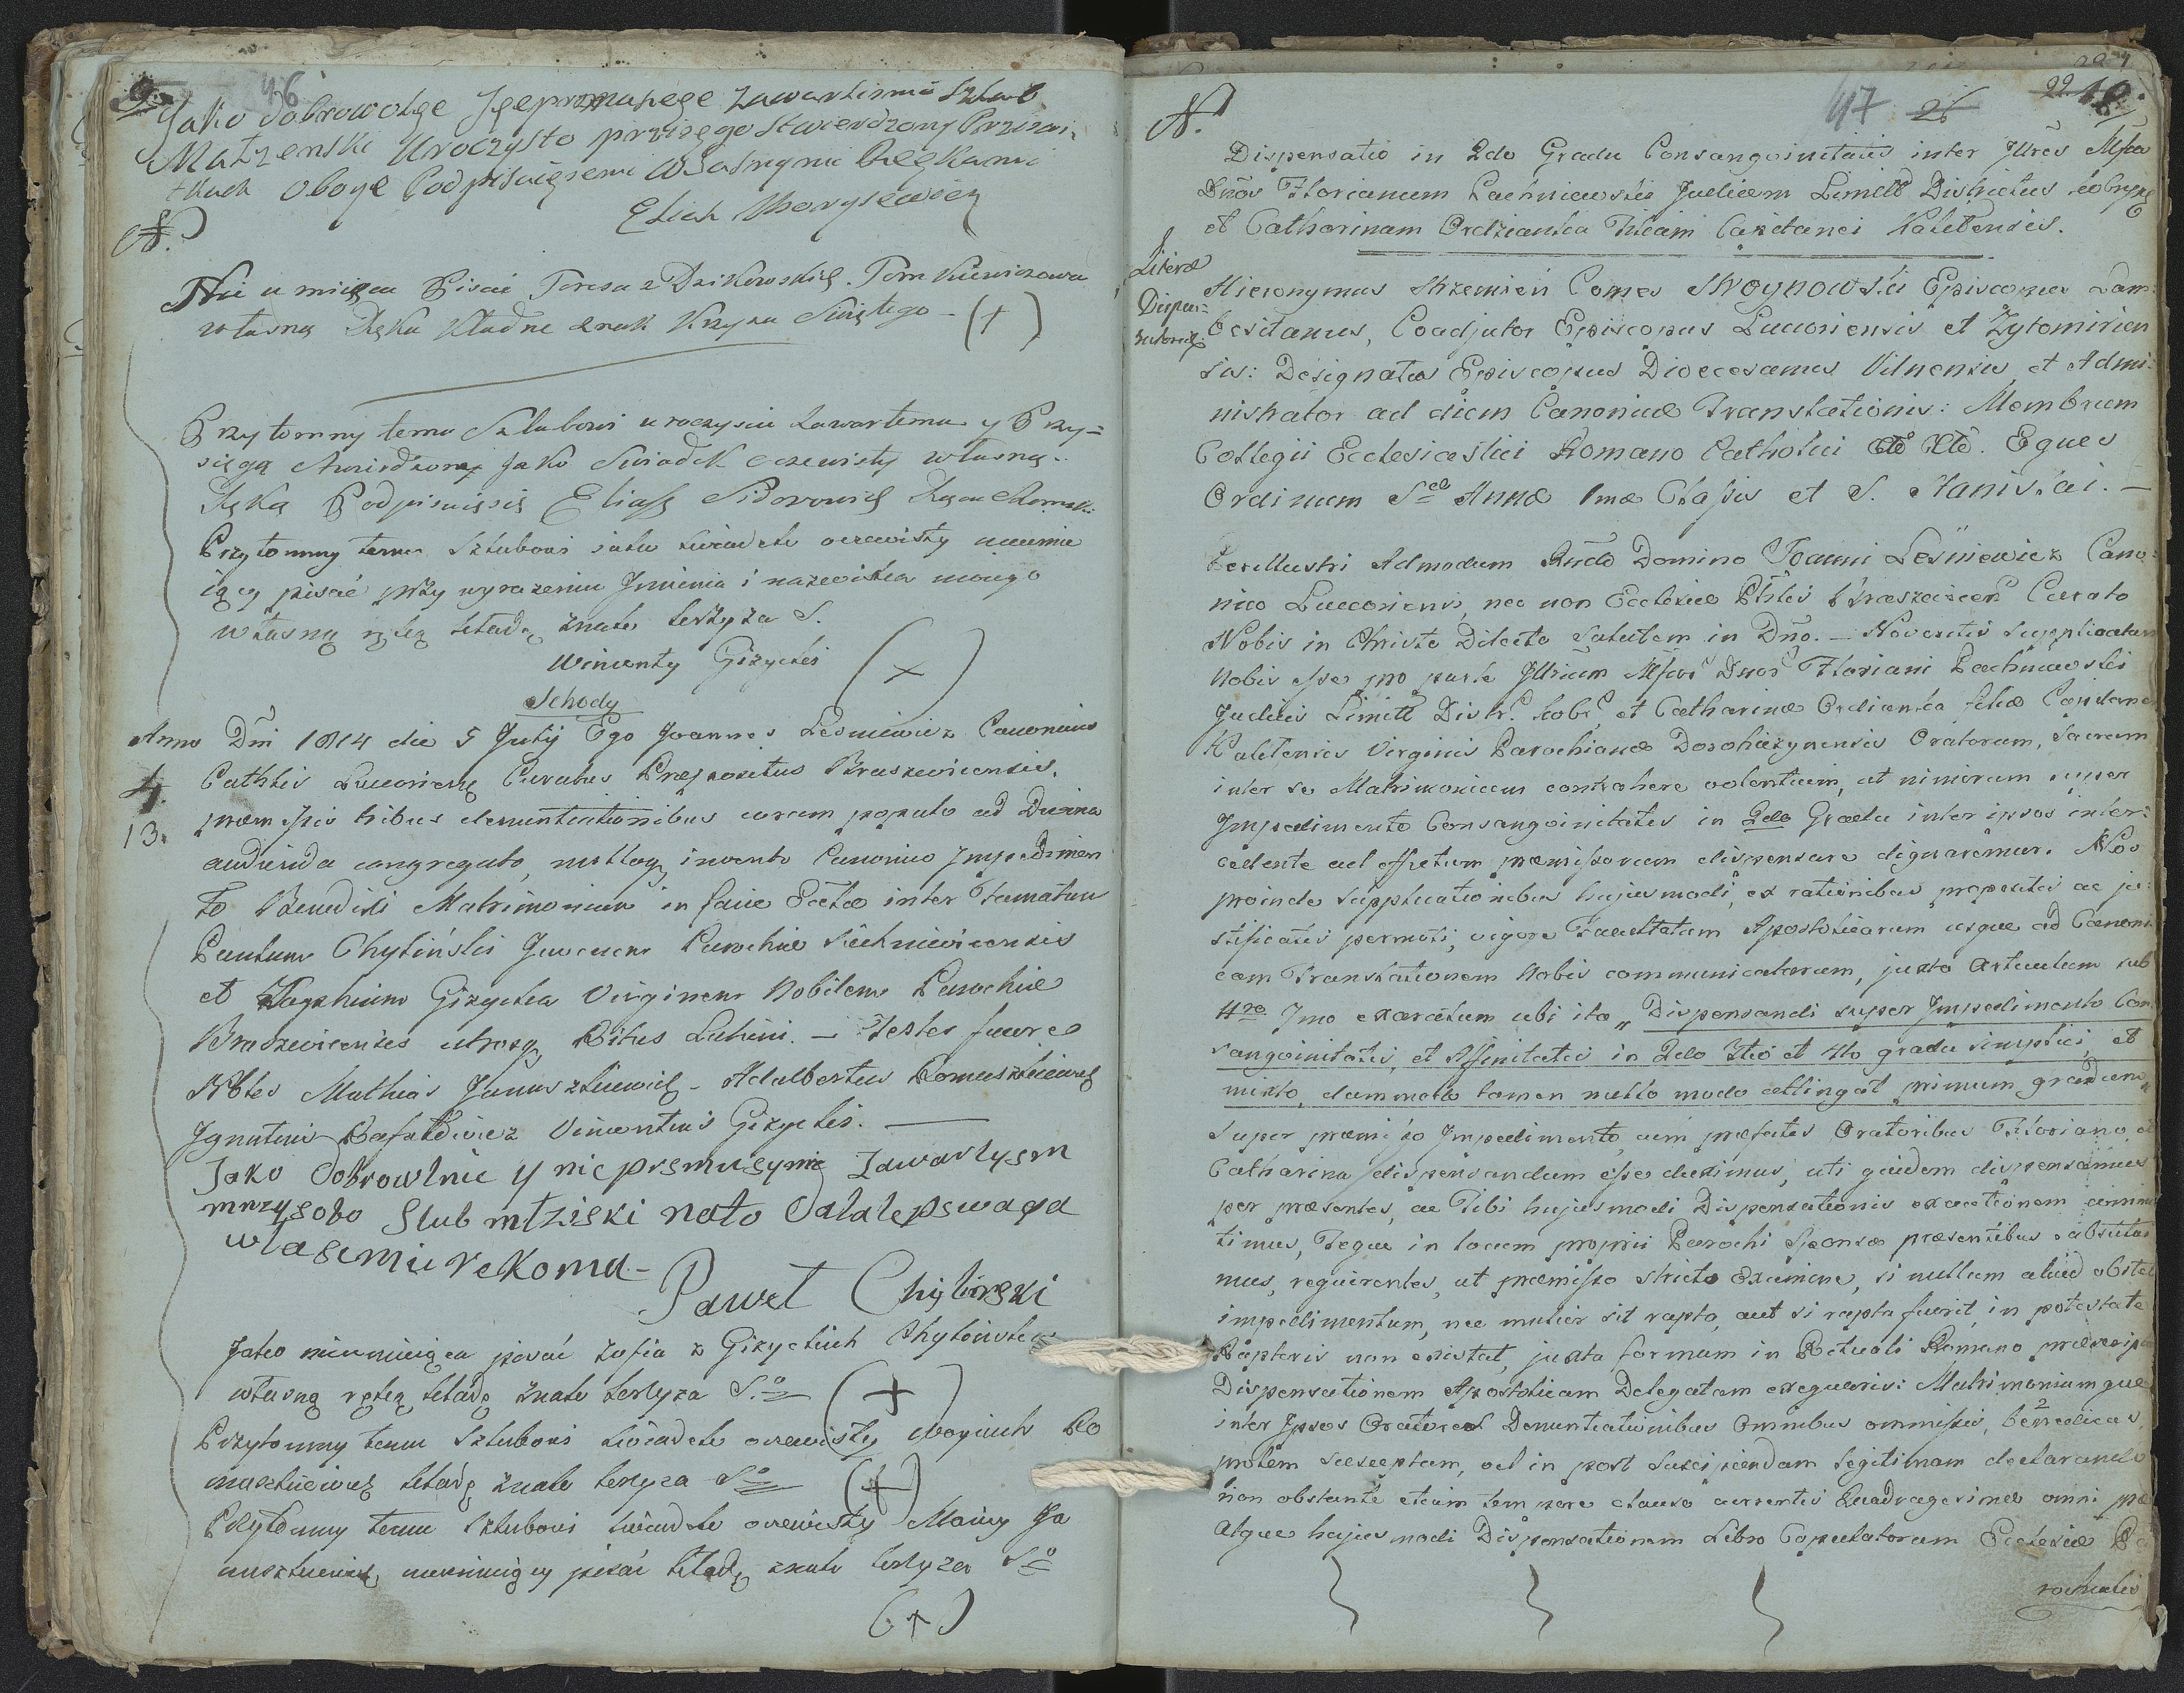 46
Jako dobrowolge Jgeprzmusege zawarlismi Szlub
Małzenski Uroczysto przisęgo stwierdzony Przi
oboye Podpisuięsemi Własnymi Ręękami
N.
Nie umięiąca Pisać Teresa z Dzikowskich Tomkiewiczowa
własną Ręką Kładne znak Krzyża Swiętego – (+)
Przytomny temu Szlubowi uroczyscie Zawartemu y Przy=
sięgą stwierdzonej Jako Swiadek oczewisty własną
Ręką Podpisuięsię Eliasz Sidorowicz
Przytomny temu Szlubowi jako swiadek oczewisty nieumie
iący pisać przy wyrażeniu Jmienia i nazwiska moiego
własną ręką kładę znak krzyża S.
Wincenty Giżycki (+)
Schody
Anno Dni 1814 die 5 Julij Ego Joannes Lesniewicz Canonicus
4. Cathlis Luceorieng Curatus Præpositus Braszevicensis,
13. præmissis tribus denuntiationibus coram populo ad Divina
audienda congregato, nulloq invento Canonico Jmpedimen
to Benedixi Matrimonium in facie Ecclæ inter Famatum
Paulum Chyliński Juvenem Parochiæ Siechniewicensis
et Sophiam Giżycka Virginem Nobilem Parochiæ
Braszevicensis utrosq Ritus Latini. – Testes fuere
Nobles Mathias Januszkiewicz – Adalbertus Romaszkiewicz
Jgnatius Rafałowicz Vincentius Giżycki. —
Jako dobrowlnie y nie prsmusynie Zawarlysm
mnzysobo Slub młziski nato
wlasemii rekoma –
Paweł Chylinski
Jako nieumieiąca pisać Zofia z Giżyckich Chylińska
własną ręką kładę znak krzyża S.o (+)
Przytomny temu Szlubowi swiadek oczewisty Woyciech Ro
maszkiewicz kładę znak krzyża So (+)
Przytomny temu Szlubowi swiadek oczewisty Maciey Ja
nuszkiewicz nieumieiący pisać kładę znak krzyża So
(+)
47 26 22 18.
N.
Dispensatio in 2do Gradu Consangvinitatis inter Jllres Mfcos
Dnos Florianum Pachniewski Judicem Limitt Districtus Cobryn
et Catharinam Ordzianka filiam Capitanei Kalitensis.
Literæ
Dispen:
satoriæ
Hieronymus Strzemień Comes Stroynowski Episcopus Lam:
besitanus, Coadjutor Episcopus Luceoriensis et Zytomirien
sis: Designatus Episcopus Dioecesanus Vilnensis et Admi:
nistrator ad diem Canonicæ Translationis: Membrum
Collegii Ecclesiastici Romano Catholici etc etc. Eques
Ordinum Scæ Annæ 1mæ Classis et S. Stanislai. –
Perillustri Admodum Rndo Domino Joanni Leśniewicz Cano:
nico Luceoriensi, nec non Ecclesiæ Pthlis Braszewicen Curato
Nobis in Christo Dilecto Salutem in Dno. – Noveritis supplicatum
Nobis esse pro parte Jllrium Mfcor Dnor Floriani Pachniewski
Judicis Limitt Distr. Cobr. et Catharinæ Ordzianka filiæ Capitanei
Kalitensis Virginis Parochianæ Dorohiczynensis Oratorum, Sacrum
inter se Matrimonium contrahere volentium, ut nimirum super
Jmpedimento Consangvinitatis in 2do Gradu inter ipsos inter:
cedente ad effectum præmissorum dispensare dignaremur. Nos
proinde supplicationibus hujusmodi, ex rationibus propositis ac ju:
stificatis permoti, vigore Facultatum Apostolicarum usque ad Canoni
cam Translationem Nobis communicatarum, juxta Articulum sub
Nro 1mo exaratum ubi ita „Dispensandi super Jmpedimento Con
sangvinitatis, et Affinitatis in 2do 3tio et 4to gradu simplici, et
mixto, dummodo tamen nullo modo attingat primum gradum„
Super præmisso Jmpedimento, cum præfatis Oratoribus Floriano, et
Catharina dispensandum esse duximus, uti quidem dispensamus
per præsentes, ac Tibi hujusmodi Dispensationis executionem commit
timus, Teque in locum proprii Parochi Sponsæ præsentibus substitui
mus, requirentes, ut præmisso stricto Examine, si nullum aliud obstet
impedimentum, nec mulier sit rapta, aut si rapta fuerit, in potestate
Raptoris non existat, juxta formam in Rituali Romano præscriptam
Dispensationem Apostolicam Delegatam exequaris: Matrimoniumque
inter Jpsos Oratores Denuntiationibus omnibus ommissis, benedicas,
prolem susceptam, vel in post suscipiendam legitimam declarando
non obstante etiam tempore clauso currentis Quadragesimæ anni
Atque hujusmodi Dispensationem Libro Copulatorum Ecclesiæ Pa
rochialis